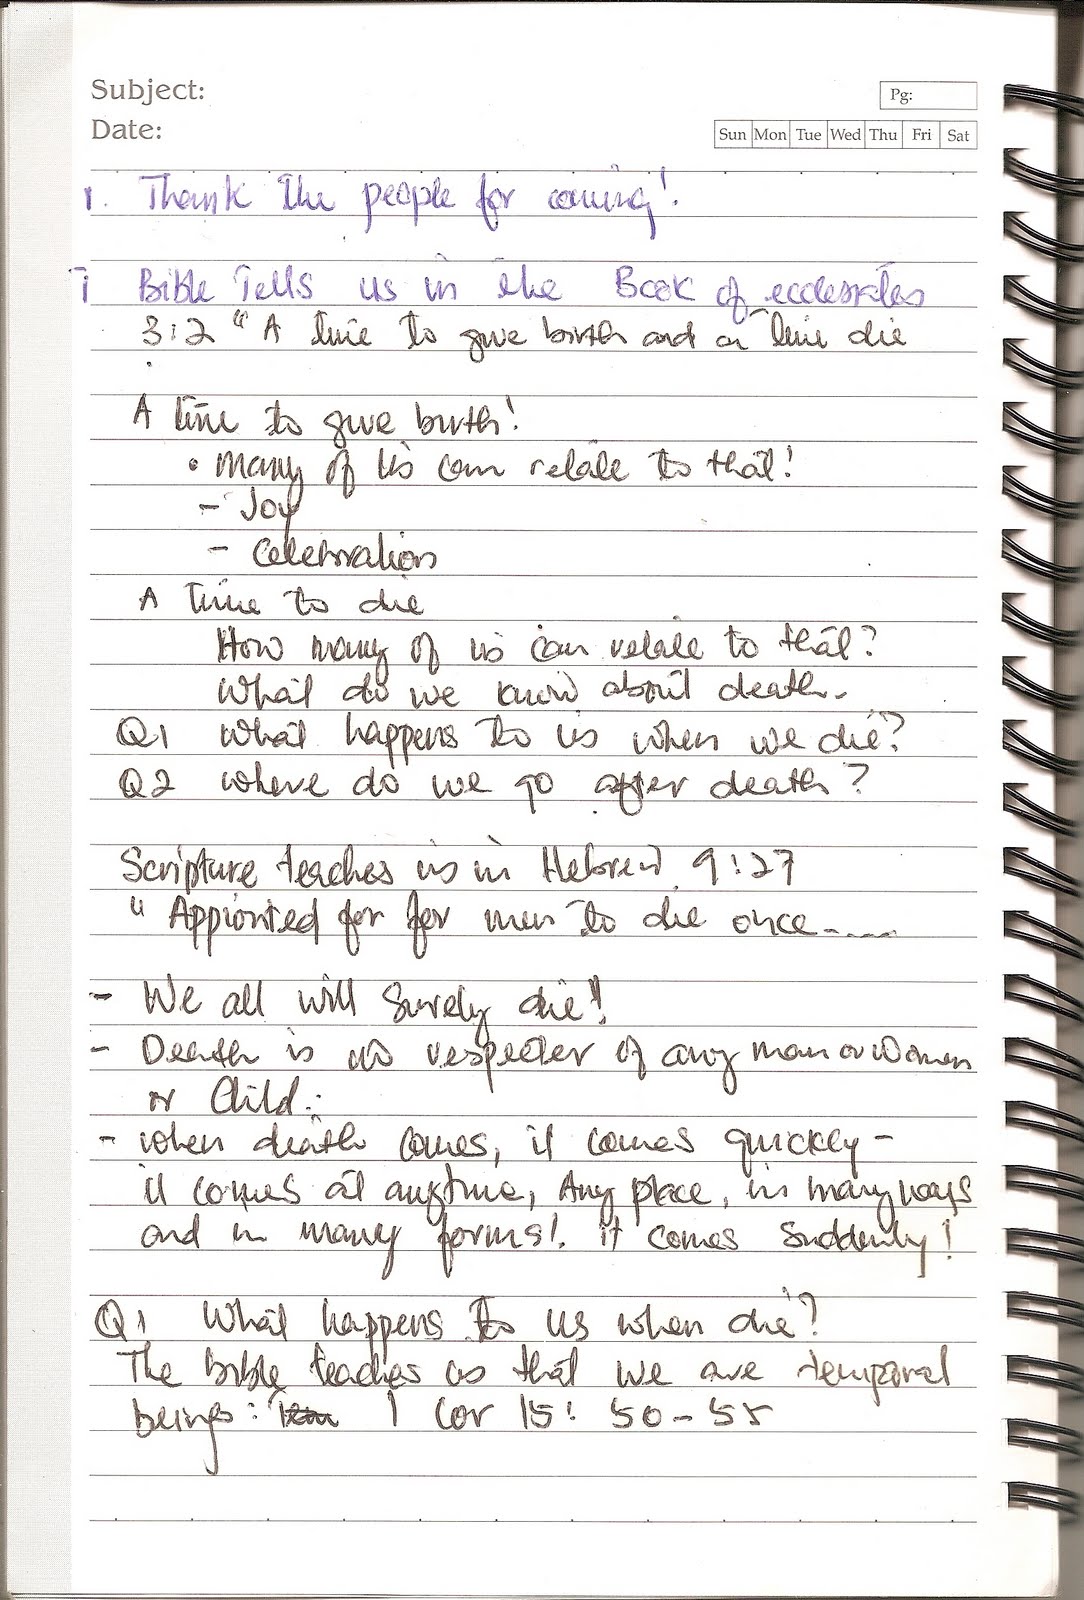 Subject:
Pg:
Date:
Sun Mon Tue Wed Thu Fri Sat
1. Thank the people for coming!
Bible Tells us in the Book of ecclesiates
3:2 " A time to give birth and a time die
A time to give birth!
• Many of us can relate to that!
- Joy
- Celebration
A Time to die
How many of us can relate to that?
What do we know about death.
Q1 What happens to us when we die?
Q2 where do we go after death?
Scripture teaches us in Hebrew 9:27
" Appionted for for men to die once.....
- We all will Surely die!!
- Death is no respecter of any man or women
or Child.
- when death comes, it comes quickly -
it comes at anytime, Any place, in many ways
and in many forms!. it comes Suddenly!
Q1 What happens to us when die?
The bible teaches us that we are temporal
beings: 1 Cor 15: 50-55